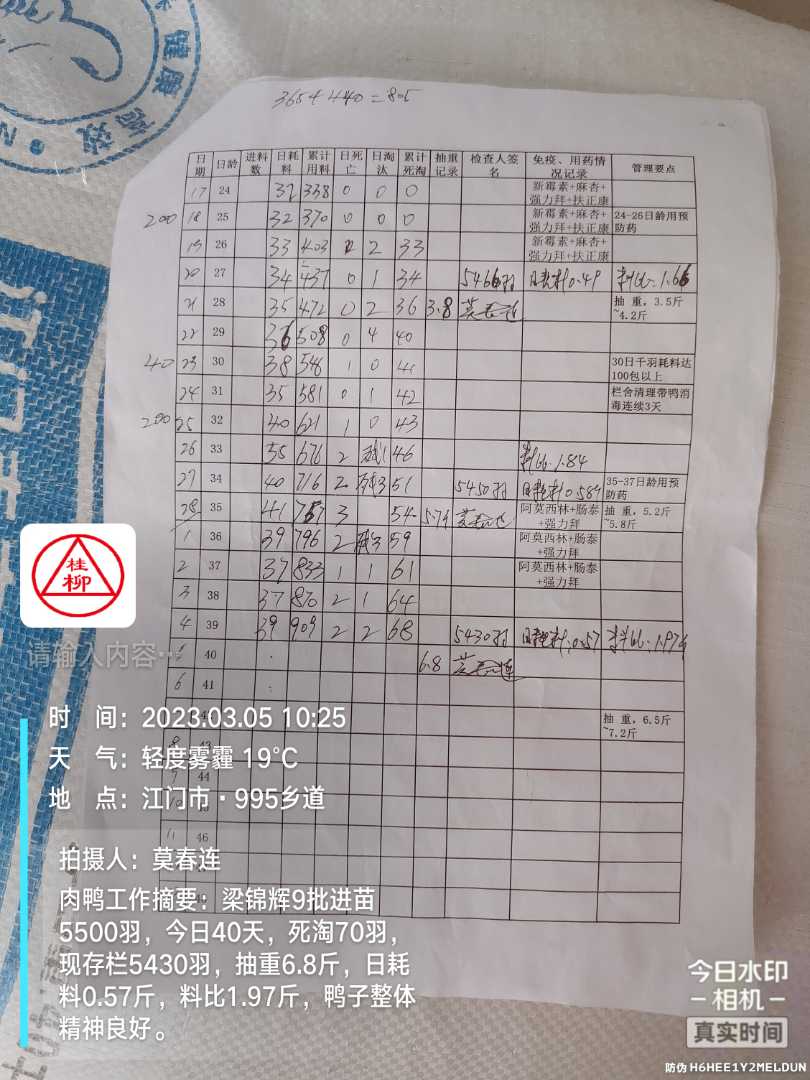 健康高效
365+440=805
日期 日龄 进料数 日耗料 累计用料 日死亡 日淘汰 累计死淘 抽重记录 检查人签名 免疫、用药情况记录 管理要点
17 24 32 338 0 0 0 新霉素+麻杏+强力拜+扶正康
200 18 25 32 370 0 0 0 新霉素+麻杏+强力拜+扶正康 24-26日龄用预防药
19 26 33 403 2 33 新霉素+麻杏+强力拜+扶正康
20 27 34 437 0 1 34 5466羽 日耗料0.49 料比:1.66
21 28 35 472 0 2 36 3.8 莫春连 抽重,3.5斤~4.2斤
22 29 36 508 0 4 40
40 23 30 38 546 1 0 41 30日千羽耗料达100包以上
24 31 35 581 0 1 42 栏舍清理带鸭消毒连续3天
200 25 32 40 621 1 0 43
26 33 55 676 2 46 料比1.84
27 34 40 716 2 51 5450羽 日耗料0.589 35-37日龄用预防药
28 35 41 757 3 54 5.79 莫春连 阿莫西林+肠泰+强力拜 抽重,5.2斤~5.8斤
1 36 39 796 2 59 阿莫西林+肠泰+强力拜
2 37 37 833 1 1 61 阿莫西林+肠泰+强力拜
3 38 37 870 2 1 64
4 39 39 909 2 2 68 5430羽 日耗料:0.57 料比:1.974
5 40 6.8 莫春连
6 41
抽重,6.5斤~7.2斤
8 43
9 44
10
11 46
桂柳
请输入内容…
时 间:2023.03.05 10:25
天 气:轻度雾霾 19℃
地 点:江门市·995乡道
拍摄人:莫春连
肉鸭工作摘要:梁锦辉9批进苗
5500羽,今日40天,死淘70羽,
现存栏5430羽,抽重6.8斤,日耗
料0.57斤,料比1.97斤,鸭子整体
精神良好。
今日水印
-相机-
真实时间
防伪 H6HEE1Y2MELDUN